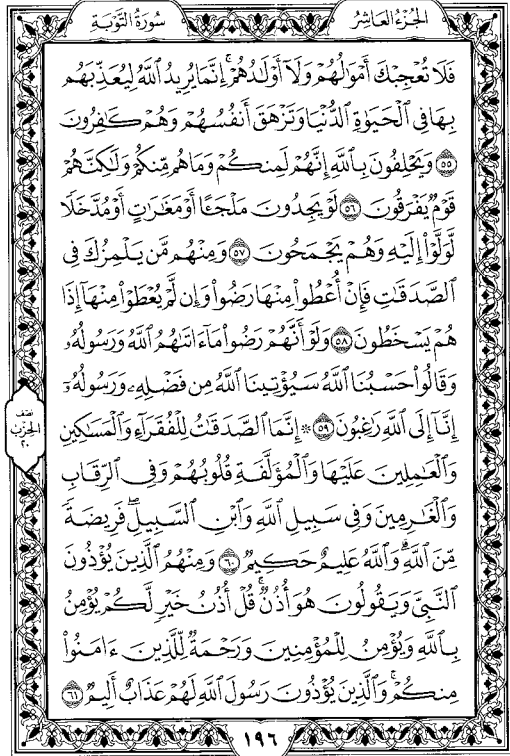 الجُزْءُ العَاشِرُ
سُورَةُ التَّوْبَةِ
فَلَا تُعْجِبْكَ أَمْوَٰلُهُمْ وَلَآ أَوْلَٰدُهُمْ ۚ إِنَّمَا يُرِيدُ ٱللَّهُ لِيُعَذِّبَهُم
بِهَا فِى ٱلْحَيَوٰةِ ٱلدُّنْيَا وَتَزْهَقَ أَنفُسُهُمْ وَهُمْ كَٰفِرُونَ
٥٥ وَيَحْلِفُونَ بِٱللَّهِ إِنَّهُمْ لَمِنكُمْ وَمَا هُم مِّنكُمْ وَلَٰكِنَّهُمْ
قَوْمٌ يَفْرَقُونَ ٥٦ لَوْ يَجِدُونَ مَلْجَـًٔا أَوْ مَغَٰرَٰتٍ أَوْ مُدَّخَلًا
لَّوَلَّوْا۟ إِلَيْهِ وَهُمْ يَجْمَحُونَ ٥٧ وَمِنْهُم مَّن يَلْمِزُكَ فِى
ٱلصَّدَقَٰتِ فَإِنْ أُعْطُوا۟ مِنْهَا رَضُوا۟ وَإِن لَّمْ يُعْطَوْا۟ مِنْهَآ إِذَا
هُمْ يَسْخَطُونَ ٥٨ وَلَوْ أَنَّهُمْ رَضُوا۟ مَآ ءَاتَىٰهُمُ ٱللَّهُ وَرَسُولُهُۥ
وَقَالُوا۟ حَسْبُنَا ٱللَّهُ سَيُؤْتِينَا ٱللَّهُ مِن فَضْلِهِۦ وَرَسُولُهُۥٓ
إِنَّآ إِلَى ٱللَّهِ رَٰغِبُونَ ٥٩ * إِنَّمَا ٱلصَّدَقَٰتُ لِلْفُقَرَآءِ وَٱلْمَسَٰكِينِ
وَٱلْعَٰمِلِينَ عَلَيْهَا وَٱلْمُؤَلَّفَةِ قُلُوبُهُمْ وَفِى ٱلرِّقَابِ
وَٱلْغَٰرِمِينَ وَفِى سَبِيلِ ٱللَّهِ وَٱبْنِ ٱلسَّبِيلِ ۖ فَرِيضَةً
مِّنَ ٱللَّهِ ۗ وَٱللَّهُ عَلِيمٌ حَكِيمٌ ٦٠ وَمِنْهُمُ ٱلَّذِينَ يُؤْذُونَ
ٱلنَّبِىَّ وَيَقُولُونَ هُوَ أُذُنٌ ۚ قُلْ أُذُنُ خَيْرٍ لَّكُمْ يُؤْمِنُ
بِٱللَّهِ وَيُؤْمِنُ لِلْمُؤْمِنِينَ وَرَحْمَةٌ لِّلَّذِينَ ءَامَنُوا۟
مِنكُمْ ۚ وَٱلَّذِينَ يُؤْذُونَ رَسُولَ ٱللَّهِ لَهُمْ عَذَابٌ أَلِيمٌ ٦١
نصف
الحِزْب
٢٠
١٩٦